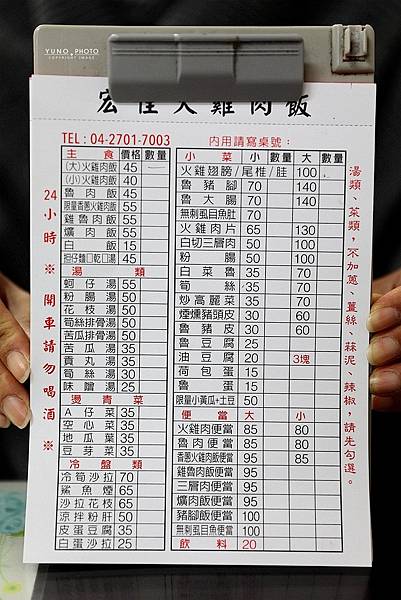 YUNO PHOTO
COPYRIGHT IMAGE
宏佳火雞肉飯
TEL : 04-2701-7003 內用請寫桌號：
24小時 ※ 開車請勿喝酒 ※
主食 價格 數量
(大)火雞肉飯 45
(小)火雞肉飯 40
魯肉飯 45
限量香蔥火雞肉飯 55
雞魯肉飯 55
爌肉飯 55
白飯 15
担仔麵□乾□湯 45
湯類
蚵仔湯 55
粉腸湯 50
花枝湯 50
筍絲排骨湯 50
苦瓜排骨湯 50
苦瓜湯 35
貢丸湯 35
筍絲湯 30
味噌湯 25
燙青菜
A仔菜 35
空心菜 35
地瓜葉 35
豆芽菜 35
冷盤類
冷筍沙拉 70
鯊魚煙 65
沙拉花枝 65
涼拌粉肝 50
皮蛋豆腐 35
白蛋沙拉 25
小菜 小 數量 大 數量
火雞翅膀/尾椎/胘 100
魯豬腳 70 140
魯大腸 70 140
無刺虱目魚肚 70
火雞肉片 65 130
白切三層肉 50 100
粉腸 50 100
白菜魯 35 70
筍絲 35 70
炒高麗菜 35 70
煙燻豬頭皮 30 60
魯豬皮 30 60
魯豆腐 25
油豆腐 20 3塊
荷包蛋 15
魯蛋 15
限量小黃瓜+土豆 50
便當 大 小
火雞肉便當 85 80
魯肉便當 85 80
香蔥火雞肉飯便當 95 85
雞魯肉飯便當 95
三層肉便當 95
爌肉飯便當 95
豬腳飯便當 100
無刺虱目魚便當 100
飲料 20
湯類、菜類，不加蔥、薑絲、蒜泥、辣椒，請先勾選。